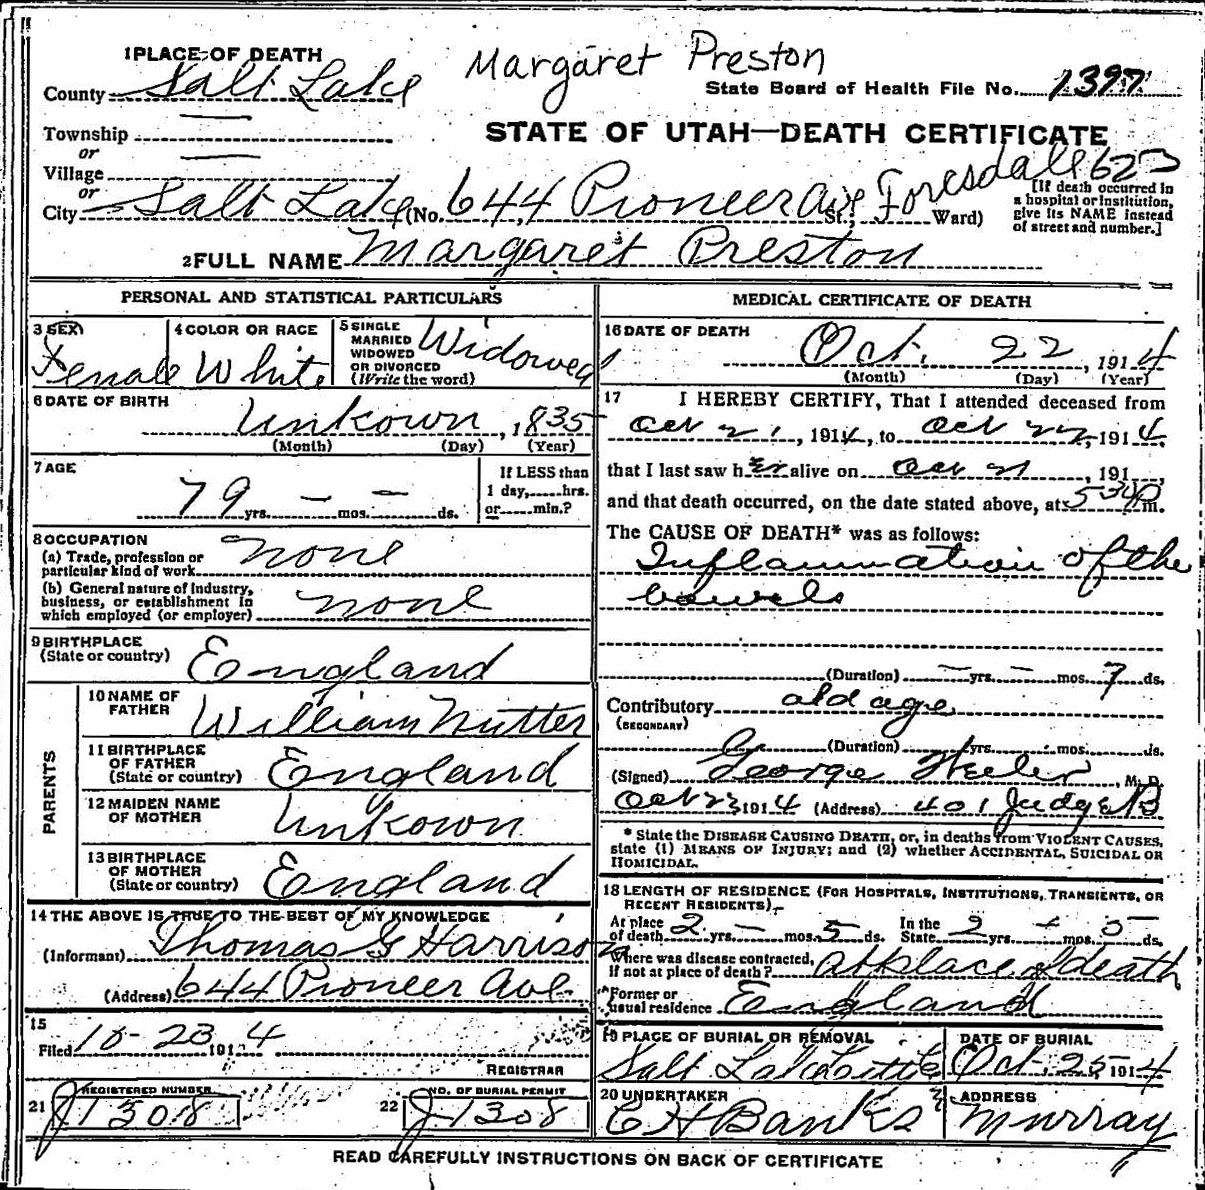 1 PLACE OF DEATH
Margaret Preston
County Salt Lake
State Board of Health File No. 1397
Township —
STATE OF UTAH—DEATH CERTIFICATE
or
Village —
or
City Salt Lake (No. 644 Pioneer Ave St; Foresdale Ward) 623
[If death occurred in a hospital or institution, give its NAME instead of street and number.]
2 FULL NAME Margaret Preston
PERSONAL AND STATISTICAL PARTICULARS
3 SEX Female
4 COLOR OR RACE White
5 SINGLE MARRIED WIDOWED OR DIVORCED (Write the word) Widowed
6 DATE OF BIRTH
Unkown, 1835
(Month) (Day) (Year)
7 AGE
79 yrs. — mos. — ds.
If LESS than 1 day, hrs. or min.?
8 OCCUPATION
(a) Trade, profession or particular kind of work none
(b) General nature of industry, business, or establishment in which employed (or employer) none
9 BIRTHPLACE
(State or country) England
PARENTS
10 NAME OF FATHER William Nutter
11 BIRTHPLACE OF FATHER (State or country) England
12 MAIDEN NAME OF MOTHER Unkown
13 BIRTHPLACE OF MOTHER (State or country) England
14 THE ABOVE IS TRUE TO THE BEST OF MY KNOWLEDGE
(Informant) Thomas G Harrison
(Address) 644 Pioneer Ave.
15
Filed 10-23 1914
REGISTRAR
21 REGISTERED NUMBER J1308
22 NO. OF BURIAL PERMIT J1308
MEDICAL CERTIFICATE OF DEATH
16 DATE OF DEATH
Oct. 22, 1914
(Month) (Day) (Year)
17 I HEREBY CERTIFY, That I attended deceased from
Oct 21, 1914, to Oct 22, 1914,
that I last saw her alive on Oct 21, 191
and that death occurred, on the date stated above, at 530 P m.
The CAUSE OF DEATH* was as follows:
Inflammation of the
bowels
(Duration) — yrs. — mos. 7 ds.
Contributory old age
(SECONDARY)
(Duration) yrs. mos. ds.
(Signed) George, M. D.
Oct 23 1914 (Address) 401 Judge B
* State the DISEASE CAUSING DEATH, or, in deaths from VIOLENT CAUSES,
state (1) MEANS OF INJURY; and (2) whether ACCIDENTAL, SUICIDAL OR
HOMICIDAL.
18 LENGTH OF RESIDENCE (FOR HOSPITALS, INSTITUTIONS, TRANSIENTS, OR
RECENT RESIDENTS)
At place of death 2 yrs. — mos. 5 ds. In the State 2 yrs. mos. ds.
Where was disease contracted, if not at place of death? At place of death
Former or usual residence England
19 PLACE OF BURIAL OR REMOVAL
Salt Lake
DATE OF BURIAL
Oct. 25 1914
20 UNDERTAKER
C H Banks
ADDRESS
Murray
READ CAREFULLY INSTRUCTIONS ON BACK OF CERTIFICATE